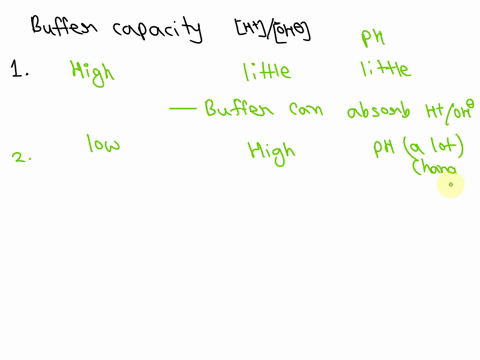 Buffer capacity [H+]/[OH⊖]
PH
1. High little little
— Buffer can absorb H+/OH⊖
2. low High PH (a lot)
(Chang